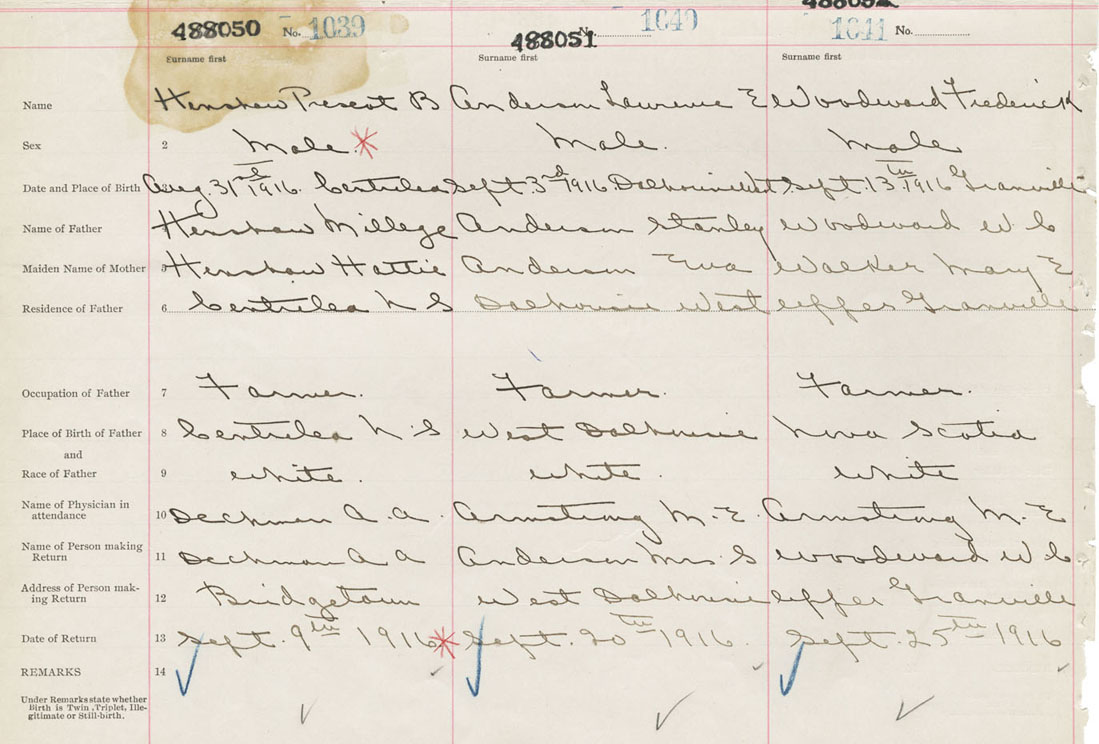 488050 No. 1039 488051 No. 1640 488052 1641 No.
Surname first Surname first Surname first
Name Henshaw Prescot B Anderson Laurence E Woodward Frederick
Sex 2 Male. Male. Male
Date and Place of Birth Aug. 31st 1916. Centrelea Sept. 3rd 1916 Dalhousie West Sept. 13th 1916 Granville
Name of Father Henshaw Millege Anderson Stanley Woodward W. C
Maiden Name of Mother 5 Henshaw Hattie Anderson Eva Walker Mary E
Residence of Father 6 Centrelea N S Dalhousie West Upper Granville
Occupation of Father 7 Farmer. Farmer. Farmer.
Place of Birth of Father 8 Centrelea N. S West Dalhousie Nova Scotia
and
Race of Father 9 White. White. White
Name of Physician in
attendance 10 Dechman A. A. Armstrong M. E. Armstrong M. E
Name of Person making
Return 11 Dechman A A Anderson Mrs S Woodward W C
Address of Person mak-
ing Return 12 Bridgetown West Dalhousie Upper Granville
Date of Return 13 Sept. 9th 1916 Sept. 20th 1916. Sept. 25th 1916
REMARKS 14
Under Remarks state whether
Birth is Twin, Triplet, Ille-
gitimate or Still-birth.